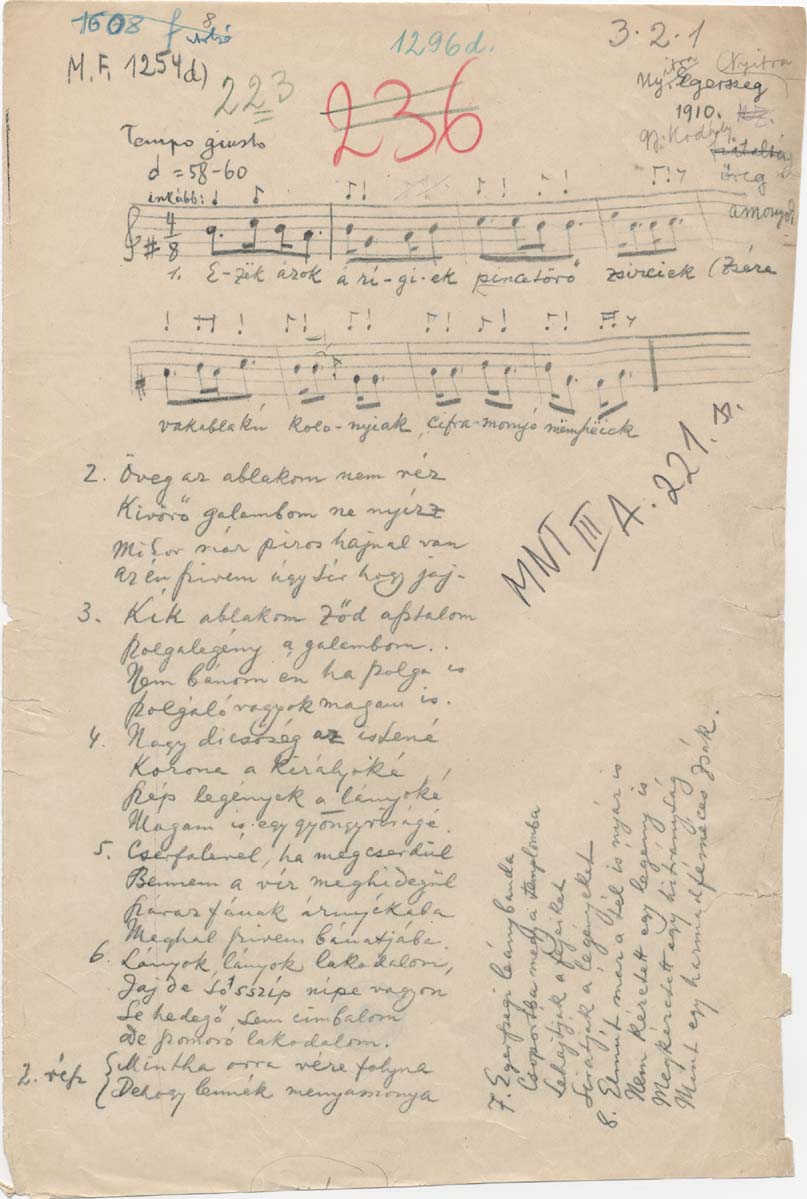 1608
8
1296d.
3. 2. 1
M.F. 1254d)
223
236
Nyitra
Nyitra
Egerszeg
1910.
gy. Kodály.
öreg
Tempo giusto
♩ = 58-60
inkább:
4/8
1. E-zëk ázok á rí-gi-ek pincetörő zsirciek (Zsére
vakablakú kolo-nyiak, cifra-monyó
MNT III A. 221.
2. Öveg az ablakom nem réz
Kivörő galambom ne nyízz
Mikor már piros hajnal van
az én szivem úgy sér hogy jaj-
3. Kík ablakom ződ asztalom
szolgalegény a galambom..
Nem bánom én ha szolga is
szolgáló vagyok magam is.
4. Nagy dicsőség az istené
Korona a királyoké
Szép legények a lányoké
Magam is egy gyöngyvirágé.
5. Cserfalevél, ha megcserdül
Bennem a vír meghidegül
Száraz fának árnyékába
Meghal szivem bánatjába.
6. Lányok, lányok lakodalom,
Jaj de sok szíp nípe vagyon
Se hedegő sem cimbalom
De szomorú lakodalom.
2. rész { Mintha orra vére folyna
Dehogy lennék menyasszonya
7. Egerszegi leánybanda
Csoportba megy a templomba
Lehajtják a fejeiket
Siratják a legényeket
8. Elmút már a tél is nyár is
Nem kéretett egy legény is
Megkéretett egy hitványság
Mint egy harmadfélmeces zsák.